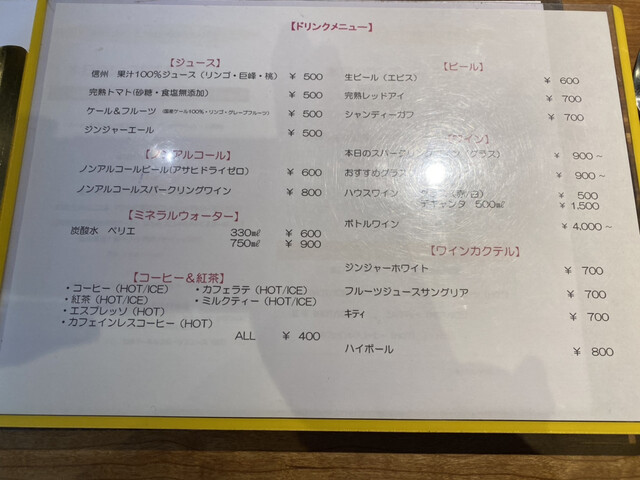 【ドリンクメニュー】
【ジュース】
信州 果汁100%ジュース(リンゴ・巨峰・桃) ¥ 500
完熟トマト(砂糖・食塩無添加) ¥ 500
ケール&フルーツ (国産ケール100%・リンゴ・グレープフルーツ) ¥ 500
ジンジャーエール ¥ 500
アルコール】
ノンアルコールビール(アサヒドライゼロ) ¥ 600
ノンアルコールスパークリングワイン ¥ 800
【ミネラルウォーター】
炭酸水 ペリエ 330㎖ ¥ 600
750㎖ ¥ 900
【コーヒー&紅茶】
・コーヒー(HOT/ICE) ・カフェラテ(HOT/ICE)
・紅茶(HOT/ICE) ・ミルクティー(HOT/ICE)
・エスプレッソ(HOT)
・カフェインレスコーヒー(HOT)
ALL ¥ 400
【ビール】
生ビール(エビス) ¥ 600
完熟レッドアイ ¥ 700
シャンディーガフ ¥ 700
イン】
本日のスパー グラス) ¥ 900~
おすすめグラス ¥ 900~
ハウスワイン (赤/白) ¥ 500
デキャンタ 500㎖ ¥ 1,500
ボトルワイン ¥ 4,000~
【ワインカクテル】
ジンジャーホワイト ¥ 700
フルーツジュースサングリア ¥ 700
キティ ¥ 700
ハイボール ¥ 800